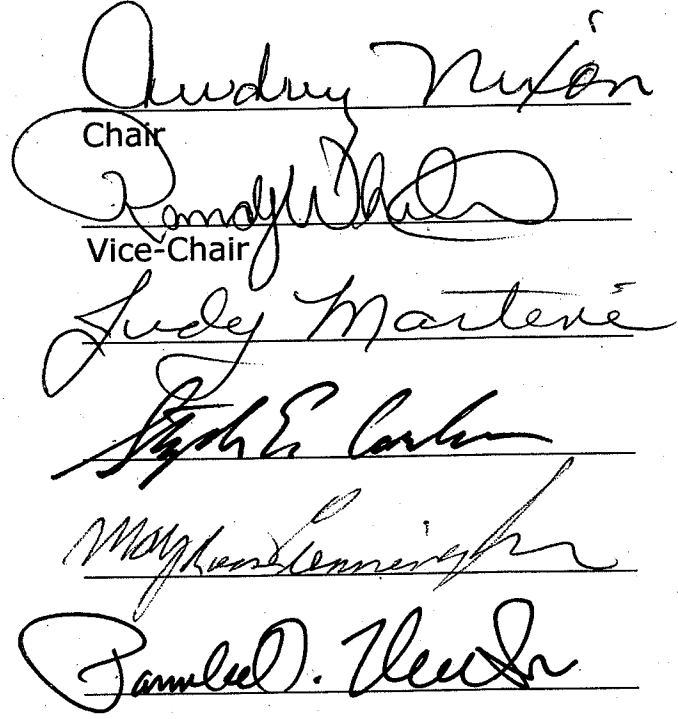 Audrey Nixon
Chair
Randy White
Vice-Chair
Judy Martens
Stephen E. Carlson
Mary Cunningham
D.